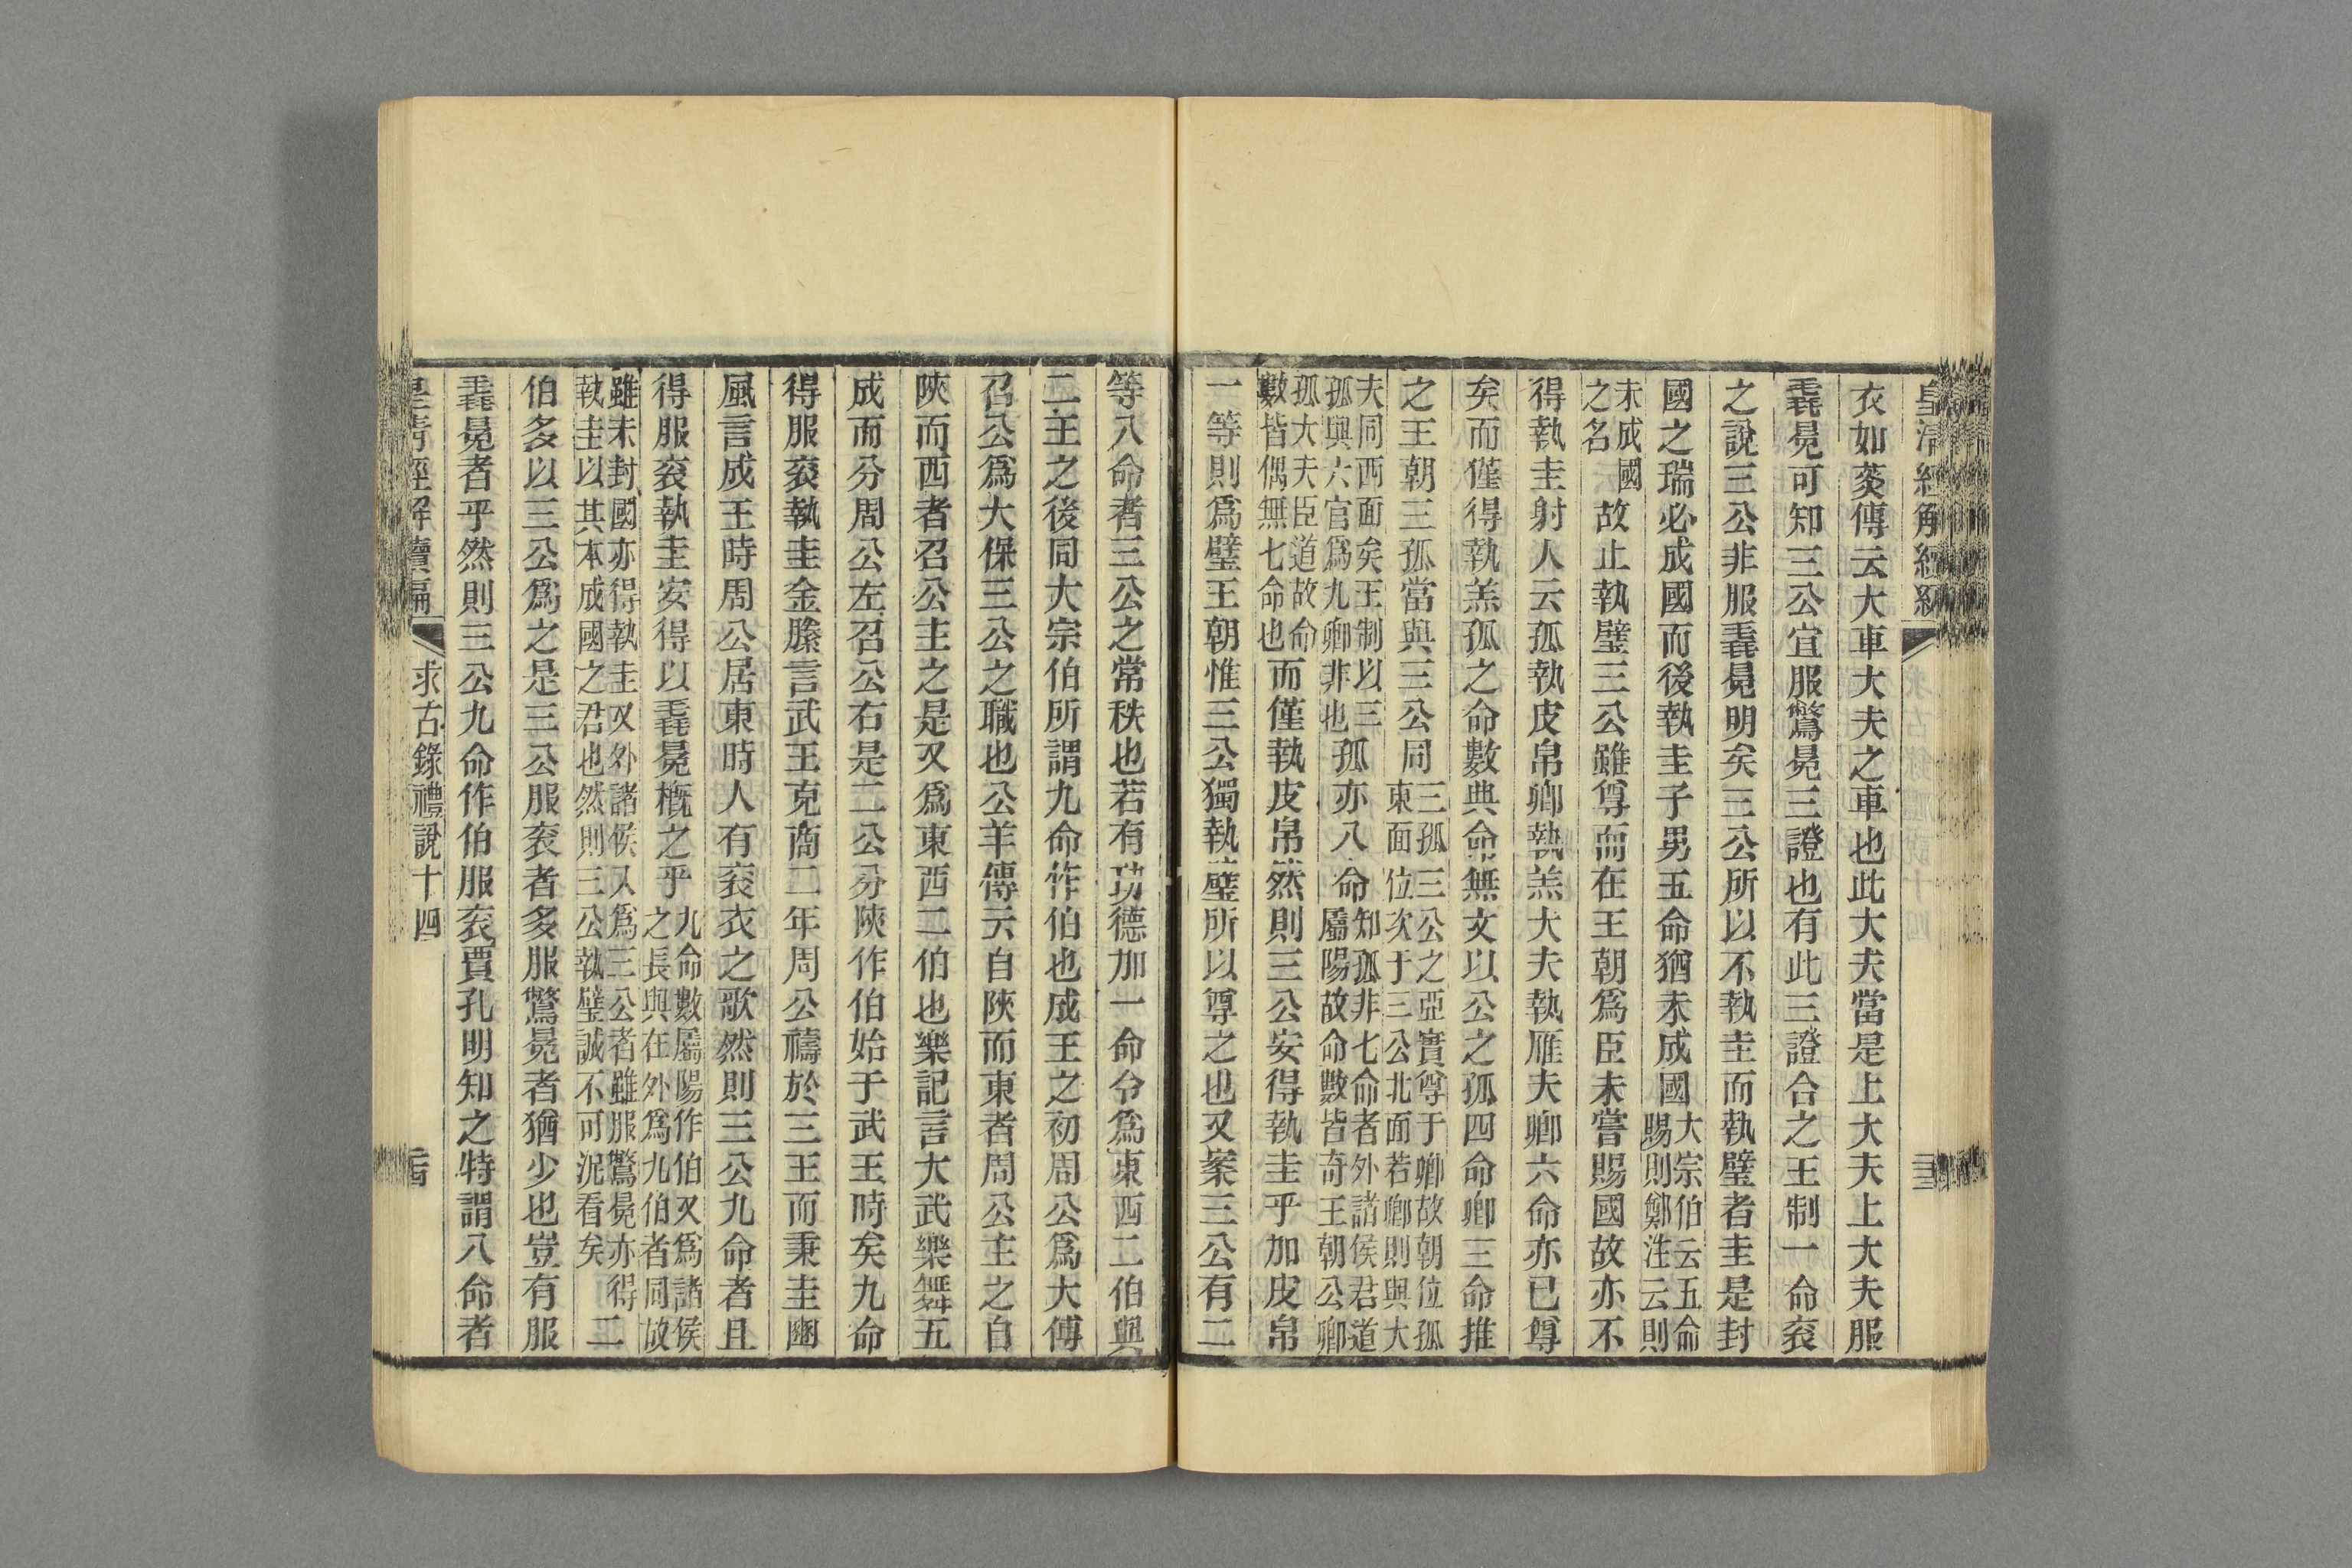 衣如菼傳云大車大夫之車也此大夫當是上大夫上大夫服
毳冕可知三公宜服鷩冕三證也有此三證合之王制一命袞
之說三公非服毳冕明矣三公所以不執圭而執璧者圭是封
國之瑞必成國而後執圭子男五命猶未成國大宗伯云五命賜則鄭注云則
未成國之名故止執璧三公雖尊而在王朝爲臣未嘗賜國故亦不
得執圭射人云孤執皮帛卿執羔大夫執雁夫卿六命亦已尊
矣而僅得執羔孤之命數典命無文以公之孤四命卿三命推
之王朝三孤當與三公同三孤三公之亞實尊于卿故朝位孤東面位次于三公北面若卿則與大
夫同西面矣王制以三孤與六官爲九卿非也孤亦八命知孤非七命者外諸侯君道屬陽故命數皆奇王朝公卿
孤大夫臣道故命數皆偶無七命也而僅執皮帛然則三公安得執圭乎加皮帛
一等則爲璧王朝惟三公獨執璧所以尊之也又案三公有二
等八命者三公之常秩也若有功德加一命令爲東西二伯與
二王之後同大宗伯所謂九命作伯也成王之初周公爲大傅
召公爲大保三公之職也公羊傳云自陝而東者周公主之自
陝而西者召公主之是又爲東西二伯也樂記言大武樂舞五
成而分周公左召公右是二公分陝作伯始于武王時矣九命
得服袞執圭金縢言武王克商二年周公禱於三王而秉圭豳
風言成王時周公居東時人有袞衣之歌然則三公九命者且
得服袞執圭安得以毳冕概之乎九命數屬陽作伯又爲諸侯之長與在外爲九伯者同故
雖未封國亦得執圭又外諸侯入爲三公者雖服鷩冕亦得執圭以其本成國之君也然則三公執璧誠不可泥看矣二
伯多以三公爲之是三公服袞者多服鷩冕者猶少也豈有服
毳冕者乎然則三公九命作伯服袞賈孔明知之特謂八命者
皇清經解續編 求古錄禮說十四